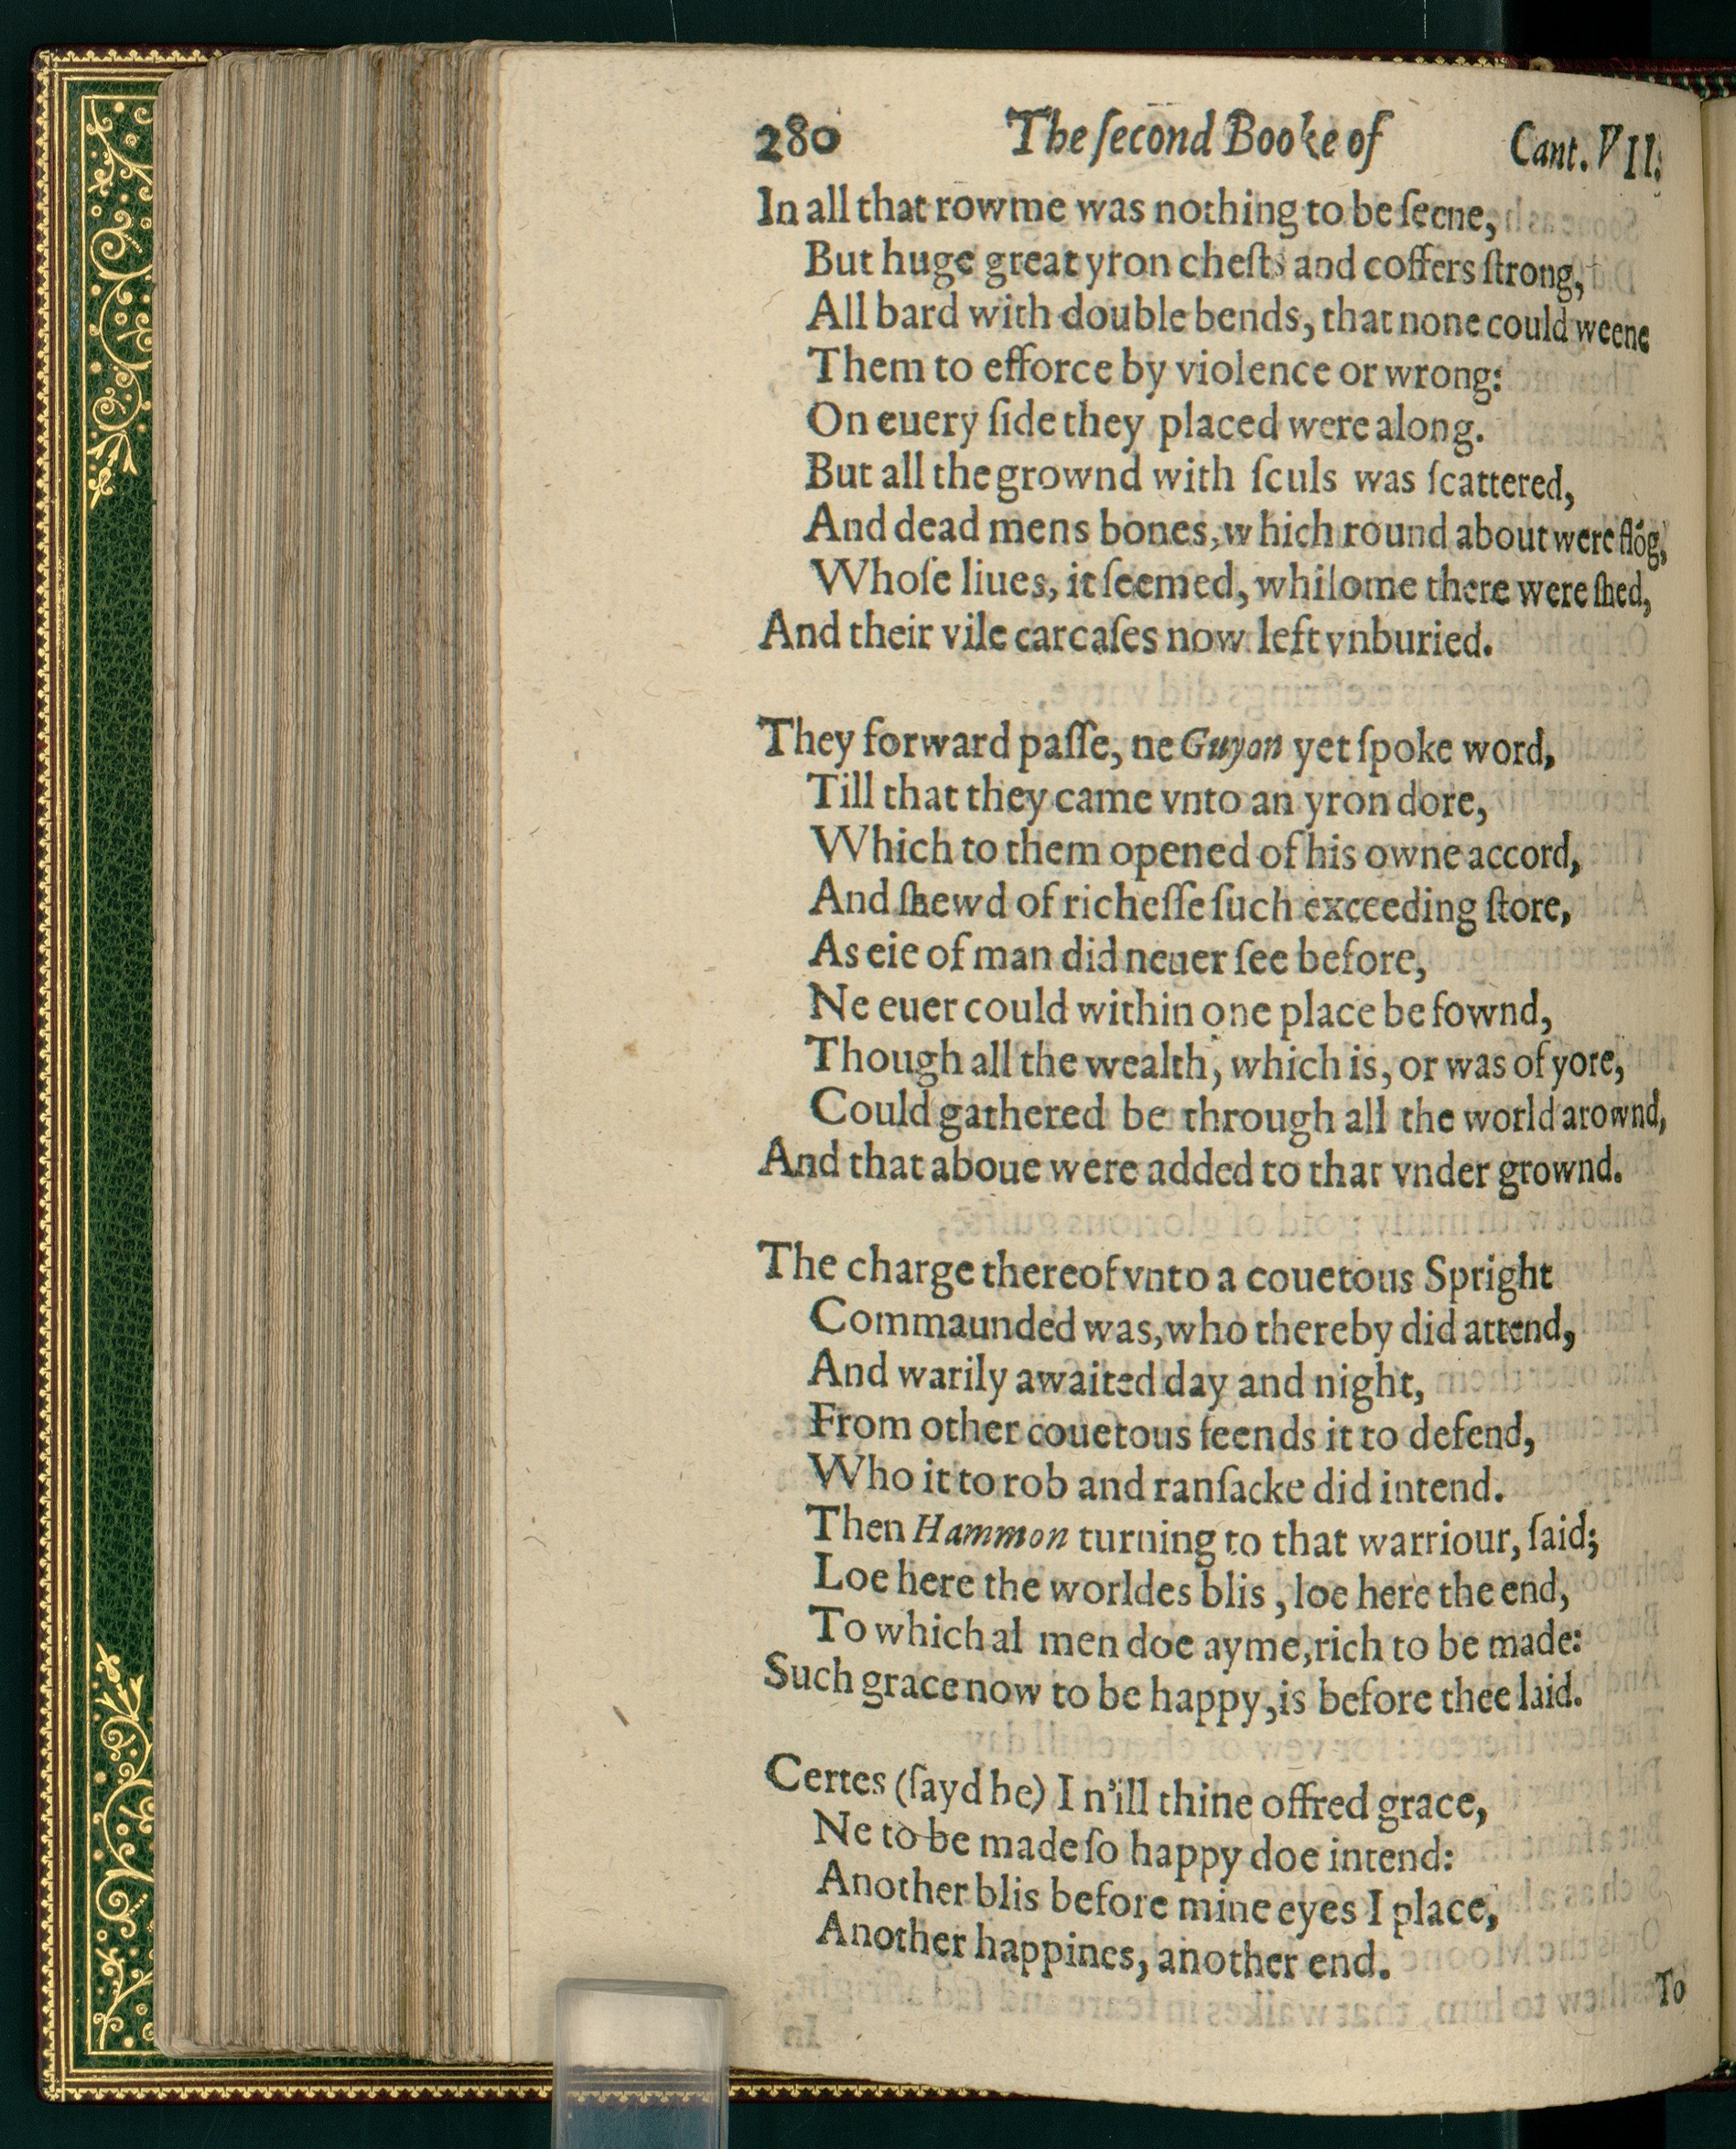 280 The ſecond Booke of Cant. VII.
In all that rowme was nothing to be ſeene,
But huge great yron cheſts and coffers ſtrong,
All bard with double bends, that none could weene
Them to efforce by violence or wrong:
On euery ſide they placed were along.
But all the grownd with ſculs was ſcattered,
And dead mens bones, which round about were flõg,
Whoſe liues, it ſeemed, whilome there were ſhed,
And their vile carcaſes now left vnburied.
They forward paſſe, ne Guyon yet ſpoke word,
Till that they came vnto an yron dore,
Which to them opened of his owne accord,
And ſhewd of richeſſe ſuch exceeding ſtore,
As eie of man did neuer ſee before,
Ne euer could within one place be fownd,
Though all the wealth, which is, or was of yore,
Could gathered be through all the world arownd,
And that aboue were added to that vnder grownd.
The charge thereof vnto a couetous Spright
Commaunded was, who thereby did attend,
And warily awaited day and night,
From other couetous feends it to defend,
Who it to rob and ranſacke did intend.
Then Hammon turning to that warriour, ſaid;
Loe here the worldes blis, loe here the end,
To which al men doe ayme, rich to be made:
Such grace now to be happy, is before thee laid.
Certes (ſayd he) I n'ill thine offred grace,
Ne to be made ſo happy doe intend:
Another blis before mine eyes I place,
Another happines, another end.
To